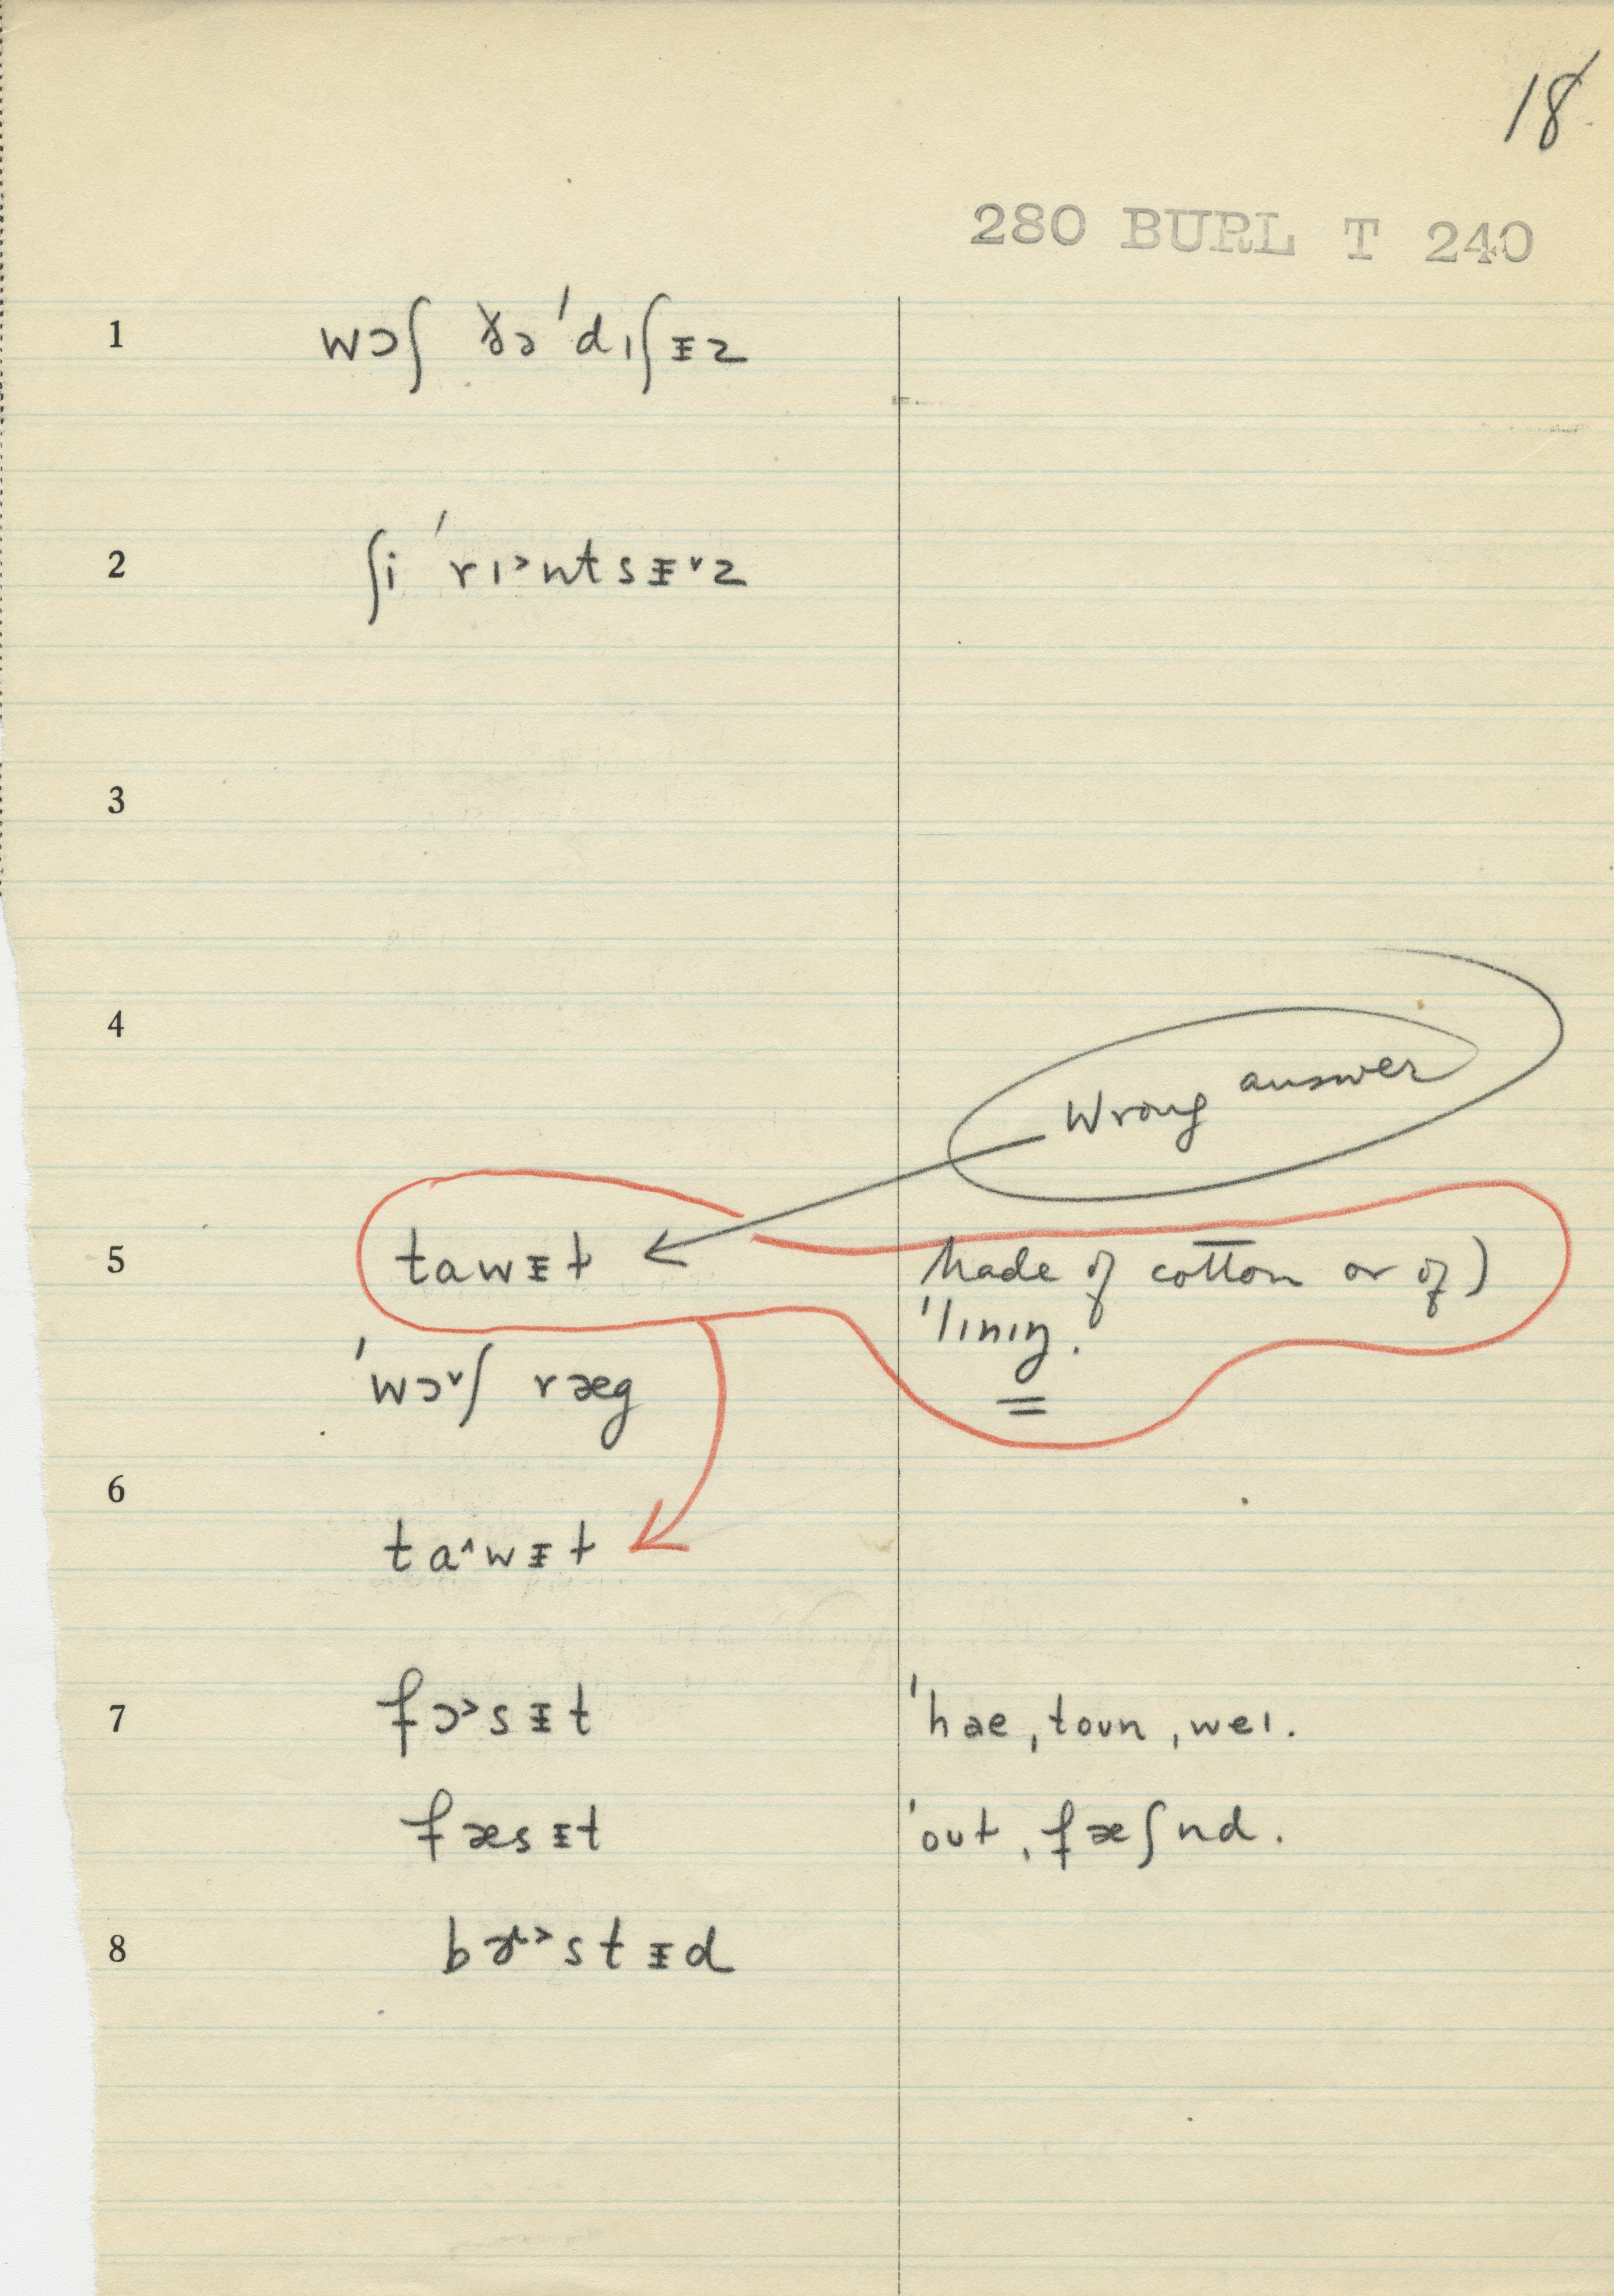 18
280 BURL T 240
1 wɔʃ ðə ˈdɪʃᵻz
2 ʃi ˈrɪ˃ntsᵻ˅z
3
4
Wrong answer
5 tawᵻt Made of cotton or of)
ˈlɪnɪŋ.
ˈwɔ˅ʃ ræg
6
ta˄wᵻt
7 fɔ˃sᵻt ˈhae, toun, weɪ.
fæsᵻt ˈout, fæʃnd.
8 stᵻd